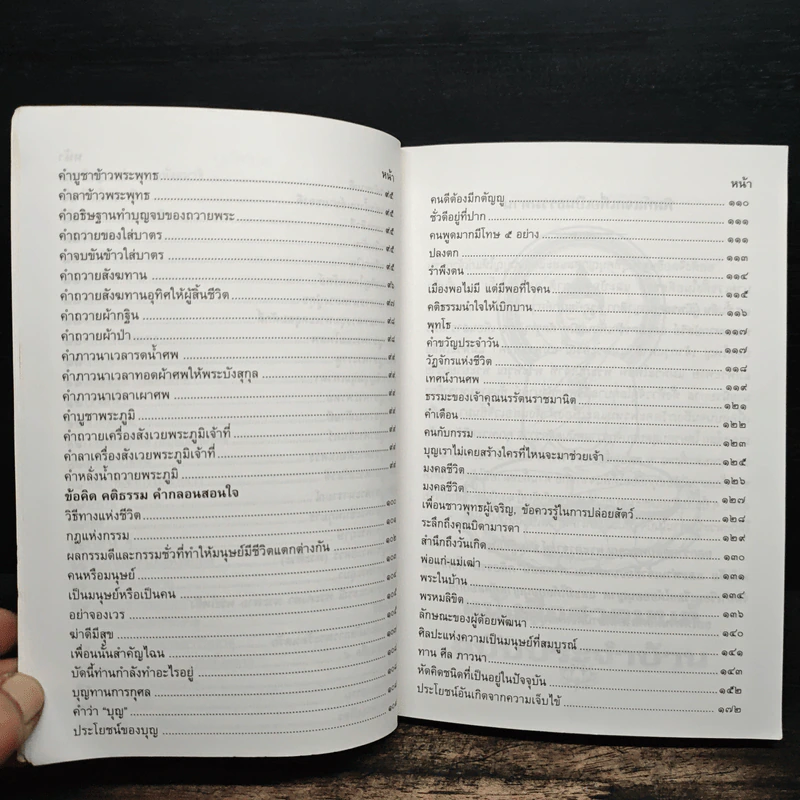 หน้า
คำบูชาข้าวพระพุทธ ๙๕
คำลาข้าวพระพุทธ ๙๕
คำอธิษฐานทำบุญจบของถวายพระ ๙๕
คำถวายของใส่บาตร ๙๕
คำจบขันข้าวใส่บาตร ๙๕
คำถวายสังฆทาน ๙๖
คำถวายสังฆทานอุทิศให้ผู้สิ้นชีวิต ๙๗
คำถวายผ้ากฐิน ๙๘
คำถวายผ้าป่า ๙๘
คำภาวนาเวลารดน้ำศพ ๙๙
คำภาวนาเวลาทอดผ้าศพให้พระบังสุกุล ๙๙
คำภาวนาเวลาเผาศพ ๙๙
คำบูชาพระภูมิ ๙๙
คำถวายเครื่องสังเวยพระภูมิเจ้าที่ ๙๙
คำลาเครื่องสังเวยพระภูมิเจ้าที่ ๙๙
คำหลั่งน้ำถวายพระภูมิ ๙๙
ข้อคิด คติธรรม คำกลอนสอนใจ
วิธีทางแห่งชีวิต ๑๐๐
กฎแห่งกรรม
ผลกรรมดีและกรรมชั่วที่ทำให้มนุษย์มีชีวิตแตกต่างกัน
คนหรือมนุษย์
เป็นมนุษย์หรือเป็นคน
อย่าจองเวร
ฆ่าดีมีสุข
เพื่อนนั้นสำคัญไฉน
บัดนี้ท่านกำลังทำอะไรอยู่
บุญทานการกุศล
คำว่า "บุญ"
ประโยชน์ของบุญ
หน้า
คนดีต้องมีกตัญญู ๑๑๐
ชั่วดีอยู่ที่ปาก ๑๑๑
คนพูดมากมีโทษ ๕ อย่าง ๑๑๑
ปลงตก ๑๑๓
รำพึงตน ๑๑๔
เมืองพอไม่มี แต่มีพอที่ใจคน ๑๑๕
คติธรรมนำใจให้เบิกบาน ๑๑๖
พุทโธ ๑๑๗
คำขวัญประจำวัน ๑๑๗
วัฏจักรแห่งชีวิต ๑๑๘
เทศน์งานศพ ๑๑๙
ธรรมะของเจ้าคุณนรรัตนราชมานิต ๑๒๑
คำเตือน ๑๒๒
คนกับกรรม ๑๒๓
บุญเราไม่เคยสร้างใครที่ไหนจะมาช่วยเจ้า ๑๒๕
มงคลชีวิต ๑๒๖
มงคลชีวิต ๑๒๗
เพื่อนชาวพุทธผู้เจริญ, ข้อควรรู้ในการปล่อยสัตว์ ๑๒๘
ระลึกถึงคุณบิดามารดา ๑๒๙
สำนึกถึงวันเกิด ๑๓๐
พ่อแก่-แม่เฒ่า ๑๓๑
พระในบ้าน ๑๓๔
พรหมลิขิต ๑๓๖
ลักษณะของผู้ด้อยพัฒนา ๑๔๐
ศิลปะแห่งความเป็นมนุษย์ที่สมบูรณ์
ทาน ศีล ภาวนา ๑๔๓
หัตถกิจชนิดที่เป็นอยู่ในปัจจุบัน ๑๕๒
ประโยชน์อันเกิดจากความเจ็บไข้ ๑๗๒